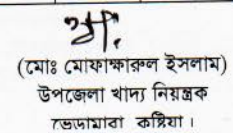 (মোঃ মোফাক্ষারুল ইসলাম)
উপজেলা খাদ্য নিয়ন্ত্রক
ভেড়ামারা কুষ্টিয়া।